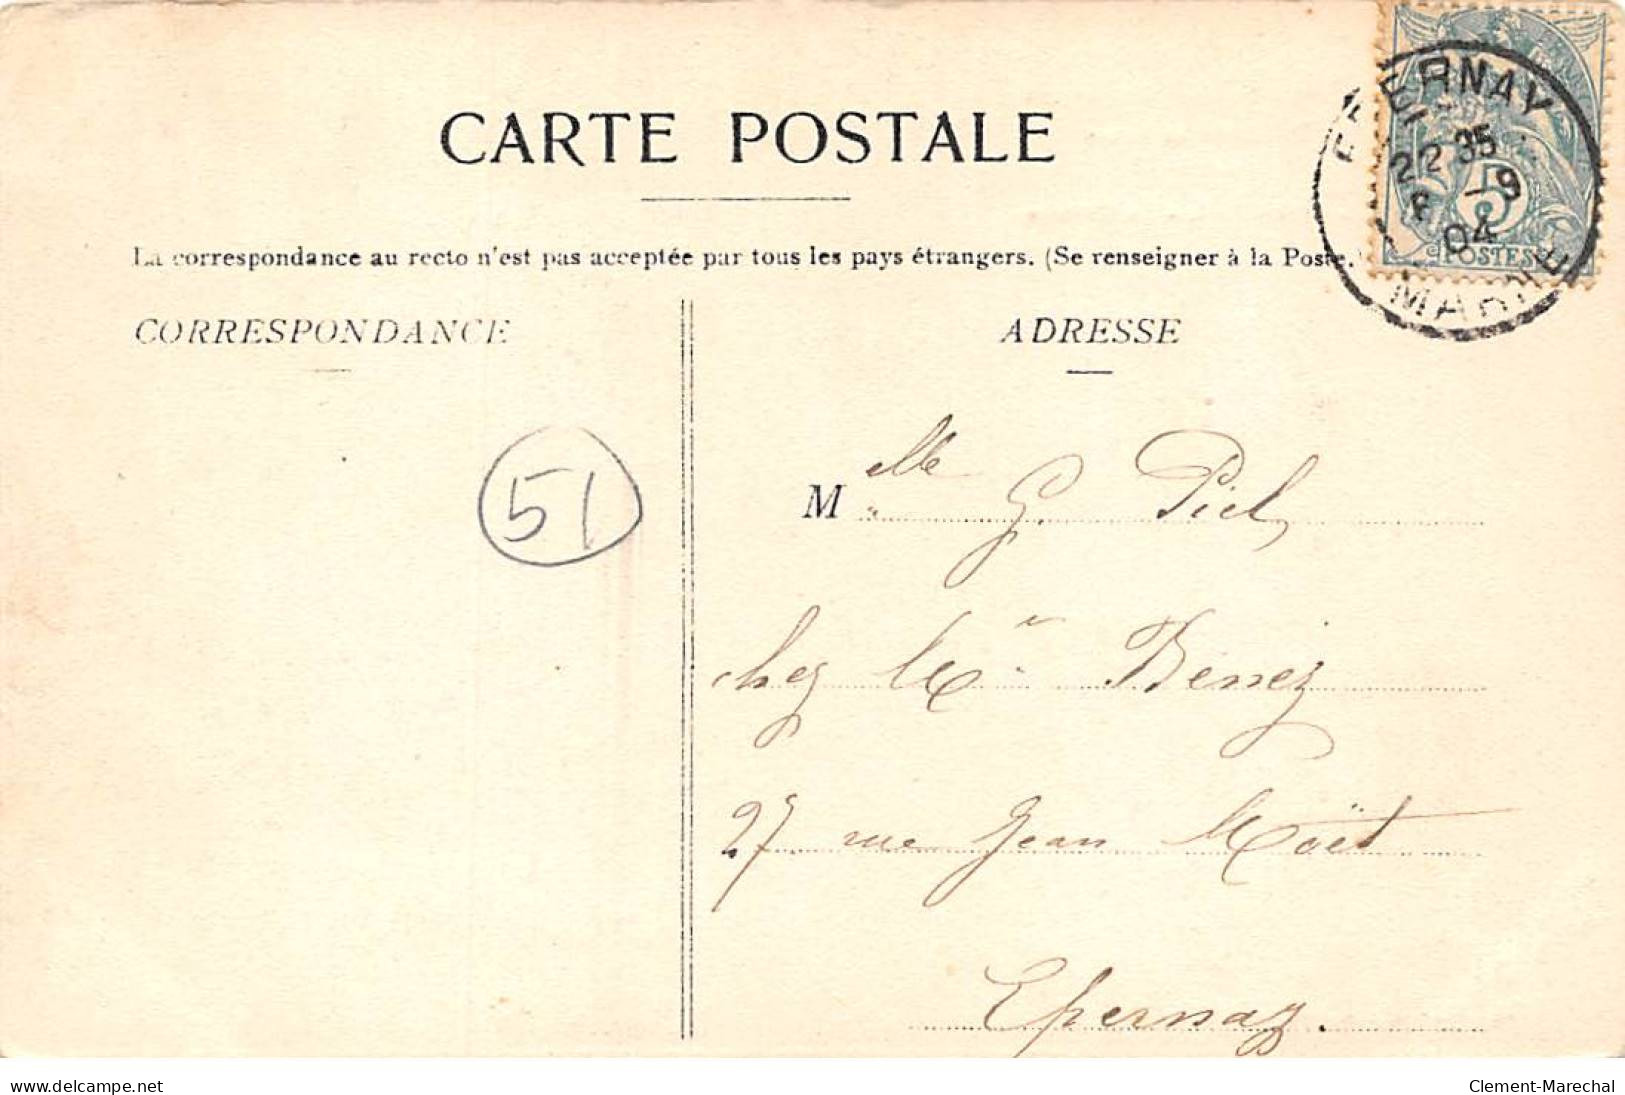 CARTE POSTALE
EPERNAY
22 35
8 -9
04
MARNE
5
POSTES
La correspondance au recto n'est pas acceptée par tous les pays étrangers. (Se renseigner à la Poste.)
CORRESPONDANCE
ADRESSE
51
Melle G. Piel
chez Mr Benez
27 rue Jean Moët
Epernay.
www.delcampe.net
Clement-Marechal